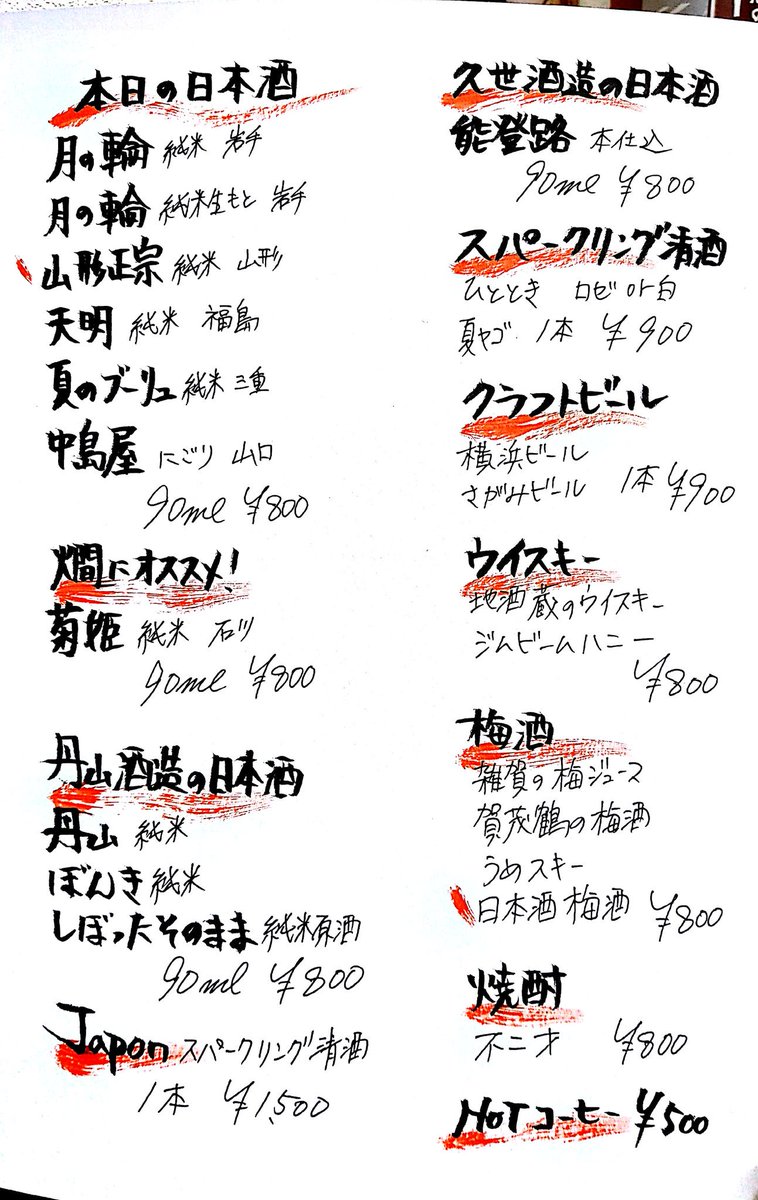 本日の日本酒
月の輪 純米 岩手
月の輪 純米生もと 岩手
山形正宗 純米 山形
天明 純米 福島
夏のブーリュ 純米 三重
中島屋 にごり 山口
90ml ¥800
燗にオススメ!
菊姫 純米 石川
90ml ¥800
丹山酒造の日本酒
丹山 純米
ぼんき 純米
しぼったそのまま 純米原酒
90ml ¥800
Japon スパークリング清酒
1本 ¥1,500
久世酒造の日本酒
能登路 本仕込
90ml ¥800
スパークリング清酒
ひととき ロゼ or 白
夏ヤゴ 1本 ¥900
クラフトビール
横浜ビール
さがみビール 1本 ¥900
ウイスキー
地酒蔵のウイスキー
ジムビームハニー
¥800
梅酒
雑賀の梅ジュース
賀茂鶴の梅酒
うめスキー
日本酒梅酒 ¥800
焼酎
不二才 ¥800
HOTコーヒー ¥500